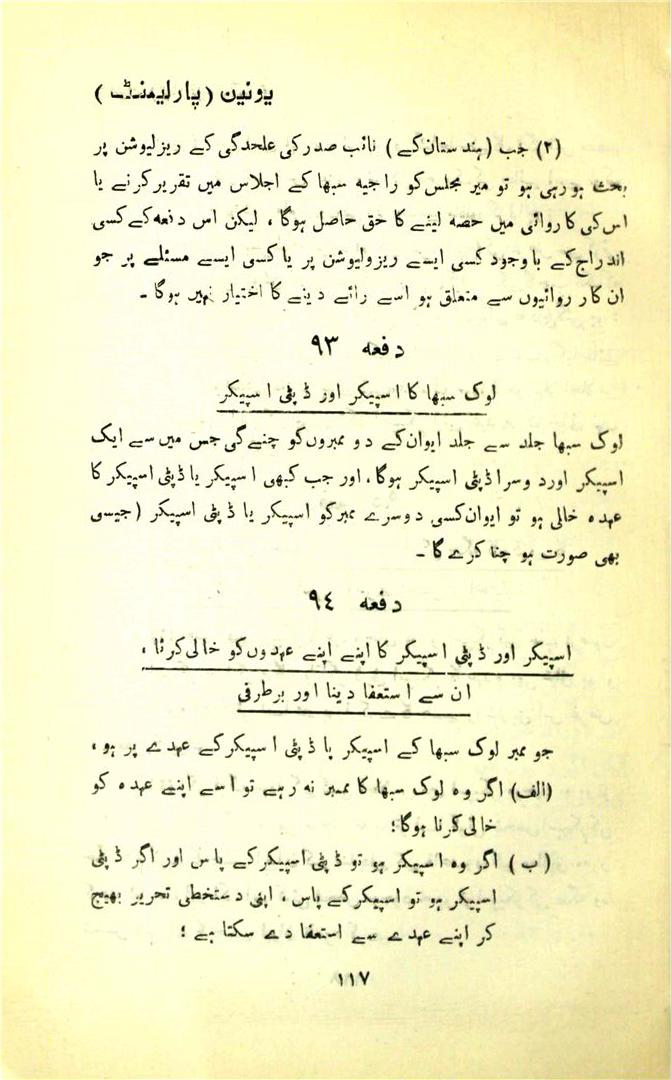 یونین (پارلیمنٹ)
(۲) جب (ہندستان کے) نائب صدر کی علحدگی کے ریزلیوشن پر
بحث ہو رہی ہو تو میر مجلس کو راجیہ سبھا کے اجلاس میں تقریر کرنے یا
اس کی کاروائی میں حصہ لینے کا حق حاصل ہوگا ، لیکن اس دفعہ کے کسی
اندراج کے باوجود کسی ایسے ریزولیوشن پر یا کسی ایسے مسئلے پر جو
ان کارروائیوں سے متعلق ہو اسے رائے دینے کا اختیار نہیں ہوگا ۔
دفعہ ۹۳
لوک سبھا کا اسپیکر اور ڈپٹی اسپیکر
لوک سبھا جلد سے جلد ایوان کے دو ممبروں کو چنے گی جس میں سے ایک
اسپیکر اور دوسرا ڈپٹی اسپیکر ہوگا ، اور جب کبھی اسپیکر یا ڈپٹی اسپیکر کا
عہدہ خالی ہو تو ایوان کسی دوسرے ممبر کو اسپیکر یا ڈپٹی اسپیکر (جیسی
بھی صورت ہو چنا کرے گا ۔
دفعہ ۹۴
اسپیکر اور ڈپٹی اسپیکر کا اپنے اپنے عہدوں کو خالی کرنا ،
ان سے استعفا دینا اور برطرفی
جو ممبر لوک سبھا کے اسپیکر یا ڈپٹی اسپیکر کے عہدے پر ہو ،
(الف) اگر وہ لوک سبھا کا ممبر نہ رہے تو اسے اپنے عہدہ کو
خالی کرنا ہوگا ؛
(ب) اگر وہ اسپیکر ہو تو ڈپٹی اسپیکر کے پاس اور اگر ڈپٹی
اسپیکر ہو تو اسپیکر کے پاس ، اپنی دستخطی تحریر بھیج
کر اپنے عہدے سے استعفا دے سکتا ہے ؛
۱۱۷